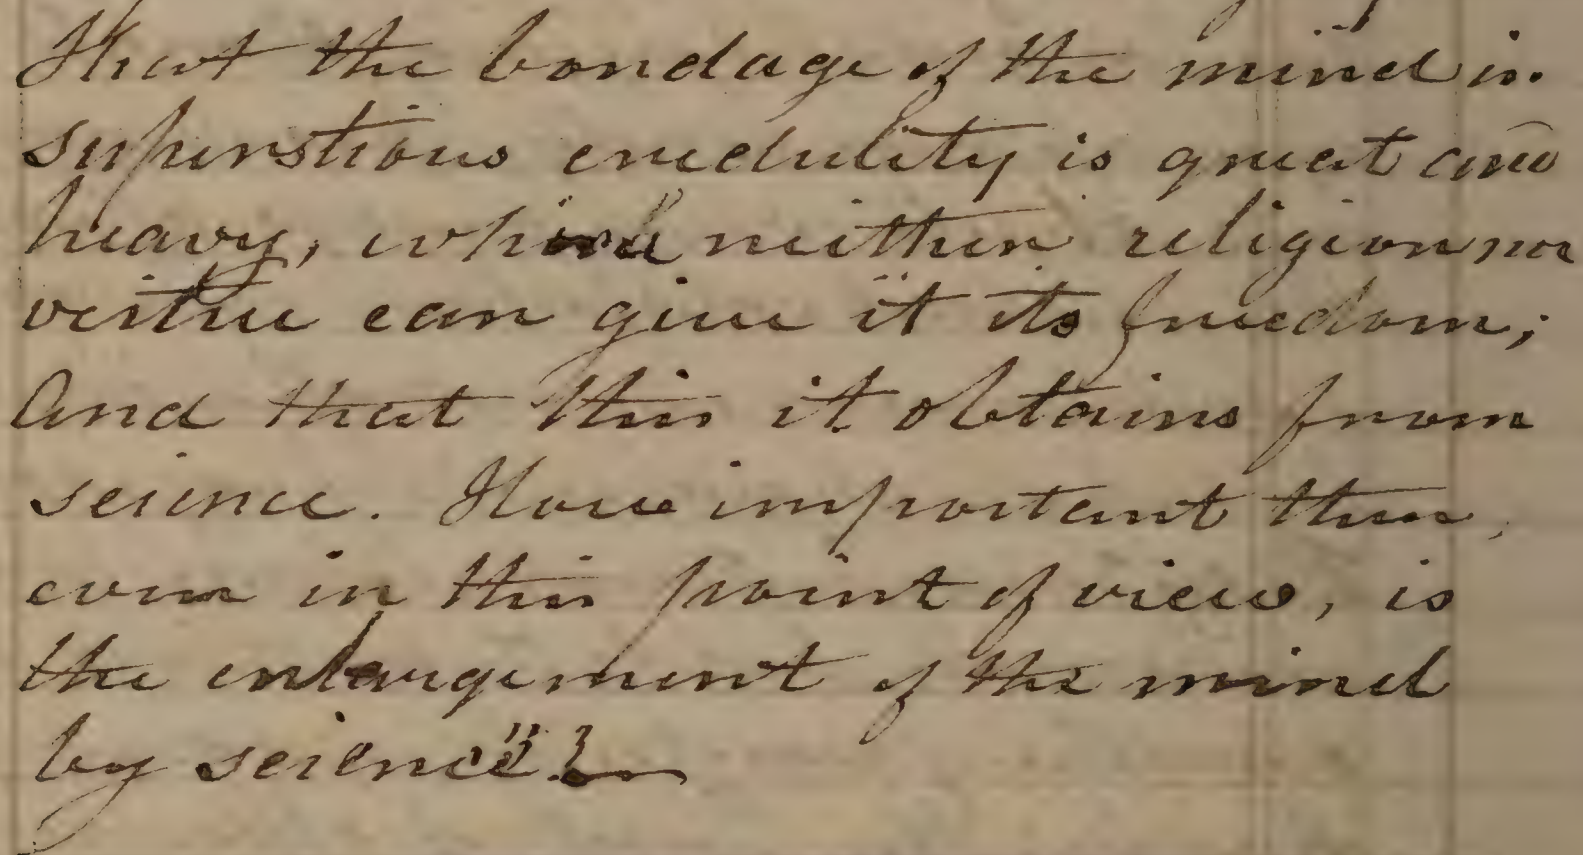 That the bondage of the mind in
superstious credulity is great and
heavy, when neither religion nor
vertue can give it its freedom;
And that this it obtains from
science. How important then,
even in this point of view, is
the enlargement of the mind
by science"?